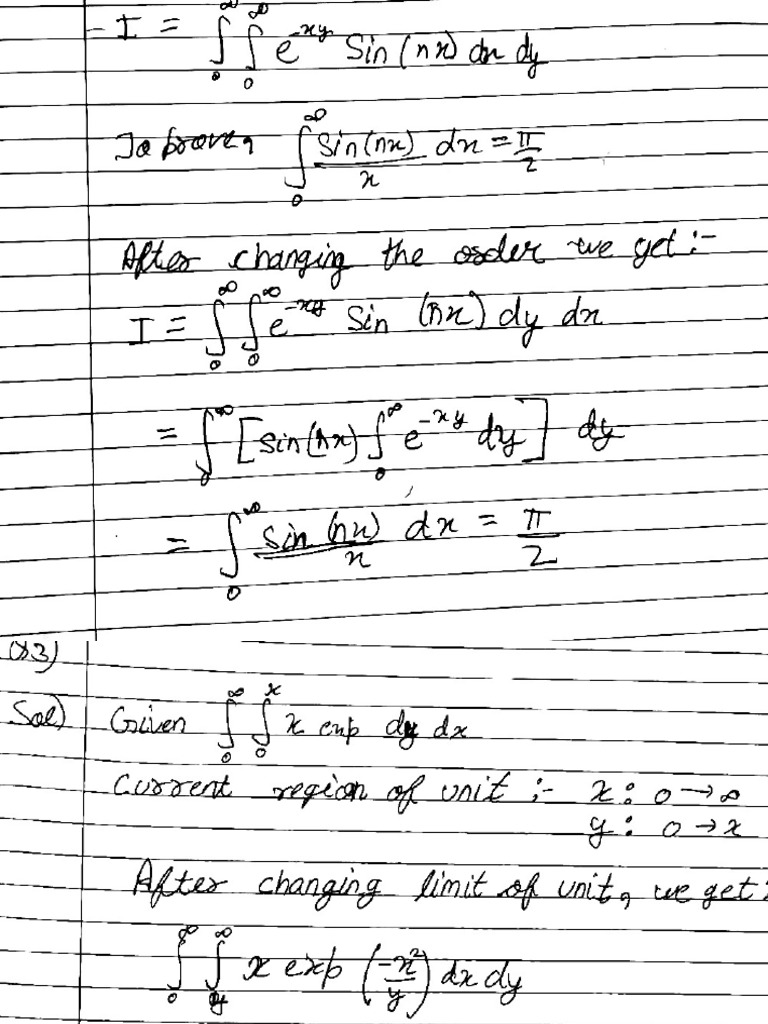 - I = ∫₀^∞ ∫₀^∞ e^{-xy} Sin (nx) dx dy
To prove, ∫₀^∞ Sin(nx)/x dx = π/2
After changing the order we get :-
I = ∫₀^∞ ∫₀^∞ e^{-xy} Sin (nx) dy dx
= ∫₀^∞ [sin(nx) ∫₀^∞ e^{-xy} dy] dy
= ∫₀^∞ Sin (nx)/x dx = π/2
Q3)
Sol) Given ∫₀^∞ ∫₀^x x exp dy dx
Current region of unit :- x : 0 → ∞
y : 0 → x
After changing limit of unit, we get :
∫₀^∞ ∫_y^∞ x exp (-x²/y) dx dy